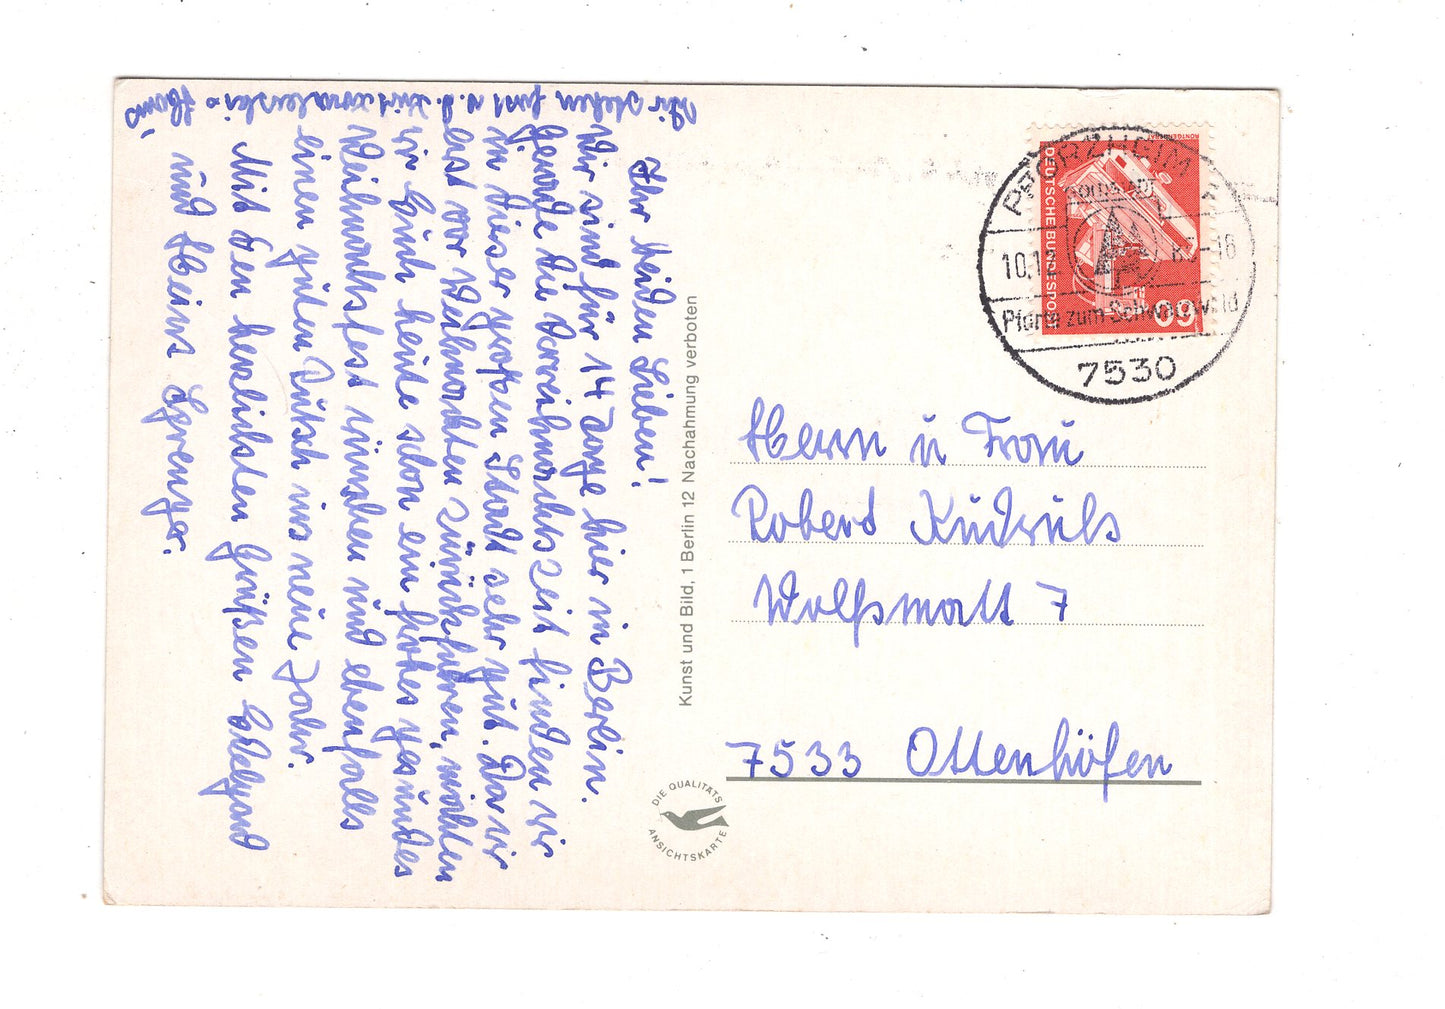 Ihr beiden Lieben!
Wir sind für 14 Tage hier in Berlin.
Gerade die Vorweihnachtszeit finden wir
in dieser großen Stadt sehr gut. Da wir
erst vor Weihnachten zurückfahren, möchten
wir Euch heute schon ein frohes gesundes
Weihnachtsfest wünschen und ebenfalls
einen guten Rutsch ins neue Jahr.
Mit den herzlichsten Grüßen
und Heinz Sprenger.
Wir stehen fast v. d.
Kunst und Bild, 1 Berlin 12 Nachahmung verboten
DIE QUALITÄTS
ANSICHTSKARTE
DEUTSCHE BUNDESPOST
60
PFORZHEIM
GOLDSTADT
10.12
18
Pforte zum Schwarzwald
7530
Herrn u Frau
Robert
Wolfsmatt 7
7533 Ottenhöfen